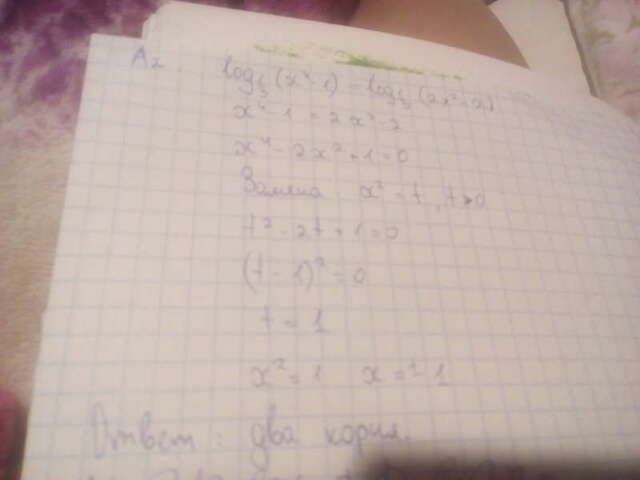 A2 log₅(x⁴-1) = log₅(2x²-2)
x⁴-1=2x²-2
x⁴-2x²+1=0
Замена x²=t, t>0
t²-2t+1=0
(t-1)²=0
t=1
x²=1 x=±1
Ответ: два корня.